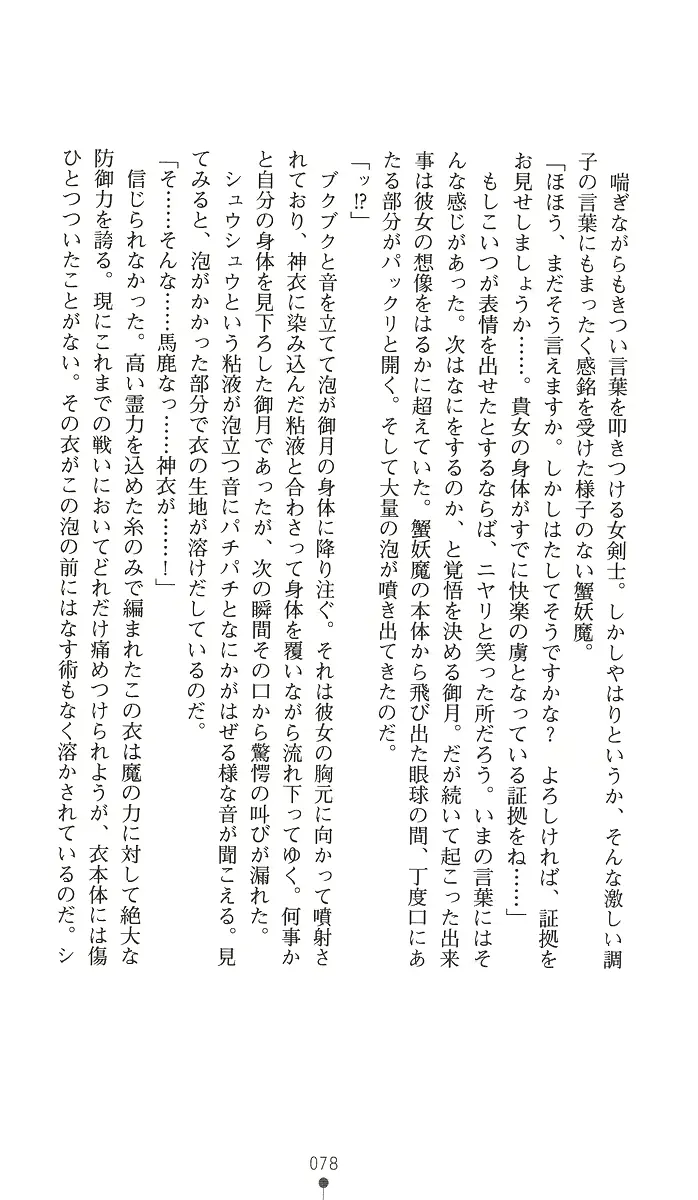 喘ぎながらもきつい言葉を叩きつける女剣士。しかしやはりというか、そんな激しい調
子の言葉にもまったく感銘を受けた様子のない蟹妖魔。
「ほほう、まだそう言えますか。しかしはたしてそうですかな？　よろしければ、証拠を
お見せしましょうか……。貴女の身体がすでに快楽の虜となっている証拠をね……」
もしこいつが表情を出せたとするならば、ニヤリと笑った所だろう。いまの言葉にはそ
んな感じがあった。次はなにをするのか、と覚悟を決める御月。だが続いて起こった出来
事は彼女の想像をはるかに超えていた。蟹妖魔の本体から飛び出た眼球の間、丁度口にあ
たる部分がパックリと開く。そして大量の泡が噴き出てきたのだ。
「ッ!?」
ブクブクと音を立てて泡が御月の身体に降り注ぐ。それは彼女の胸元に向かって噴射さ
れており、神衣に染み込んだ粘液と合わさって身体を覆いながら流れ下ってゆく。何事か
と自分の身体を見下ろした御月であったが、次の瞬間その口から驚愕の叫びが漏れた。
シュウシュウという粘液が泡立つ音にパチパチとなにかがはぜる様な音が聞こえる。見
てみると、泡がかかった部分で衣の生地が溶けだしているのだ。
「そ……そんな……馬鹿なっ……神衣が……！」
信じられなかった。高い霊力を込めた糸のみで編まれたこの衣は魔の力に対して絶大な
防御力を誇る。現にこれまでの戦いにおいてどれだけ痛めつけられようが、衣本体には傷
ひとつついたことがない。その衣がこの泡の前にはなす術もなく溶かされているのだ。シ
078